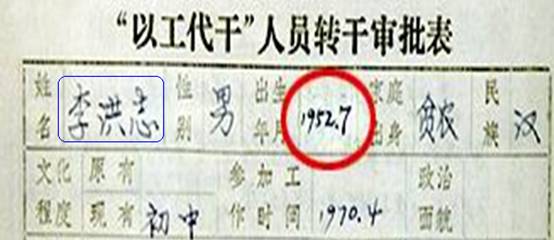 “以工代干”人员转干审批表
姓名 李洪志 性别 男 出生年月 1952.7 家庭出身 贫农 民族 汉
文化程度 原有 现有 初中 参加工作时间 1970.4 政治面貌